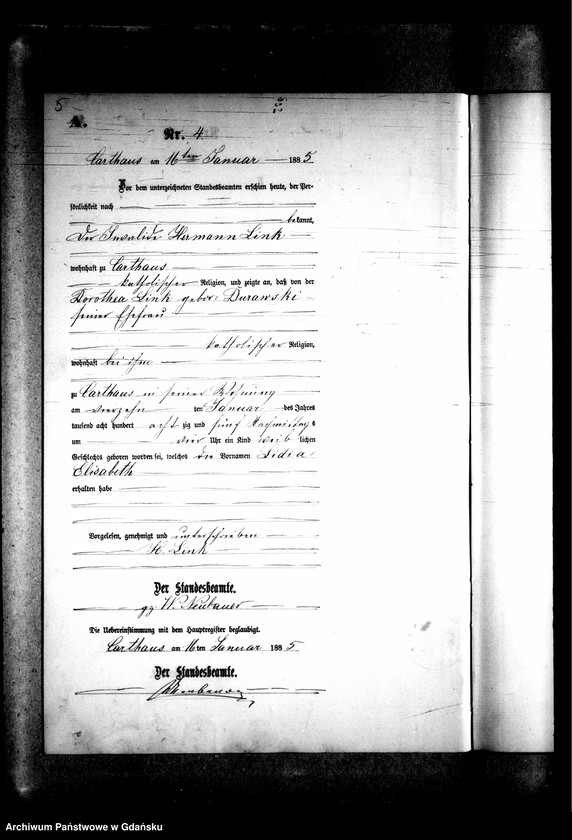 5
A.
Nr. 4
Carthaus am 16ten Januar 1885
Vor dem unterzeichneten Standesbeamten erschien heute, der Per-
sönlichkeit nach
bekannt,
Der Invalide Hermann Link
wohnhaft zu Carthaus
katholischer Religion, und zeigte an, daß von der
Dorothea Link gebor: Durawski
seiner Ehefrau
katholischer Religion,
wohnhaft bei ihm
zu Carthaus in seiner Wohnung
am vierzehn ten Januar des Jahres
tausend acht hundert acht zig und fünf Nachmittags
um vier Uhr ein Kind weib lichen
Geschlechts geboren worden sei, welches die Vornamen Lidia
Elisabeth
erhalten habe
Vorgelesen, genehmigt und unterschrieben
H. Link
Der Standesbeamte.
gz. W. Neubauer
Die Uebereinstimmung mit dem Hauptregister beglaubigt.
Carthaus am 16ten Januar 1885
Der Standesbeamte.
Neubauer
Archiwum Państwowe w Gdańsku